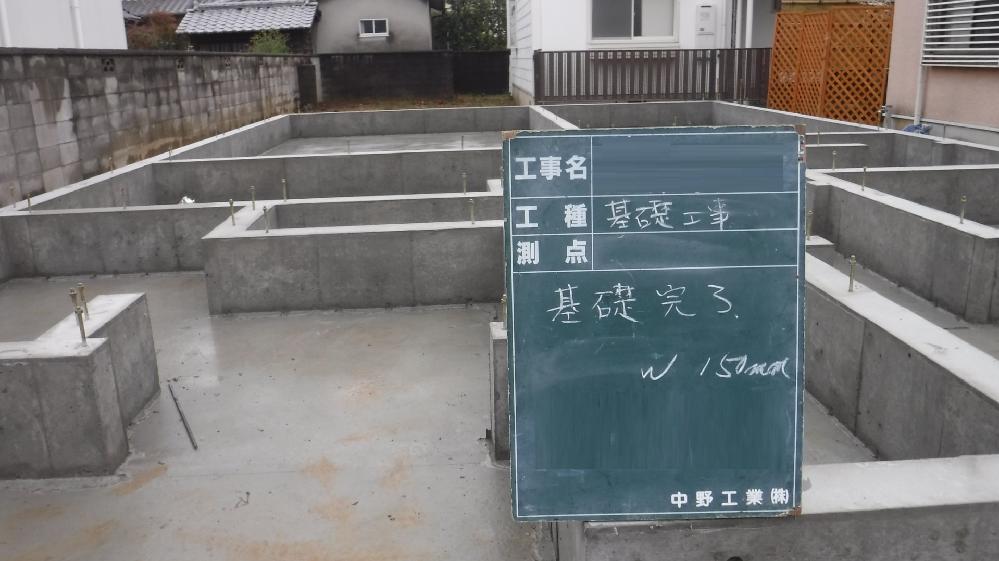 工事名
工種 基礎工事
測点
基礎完了.
W 150mm
中野工業㈱